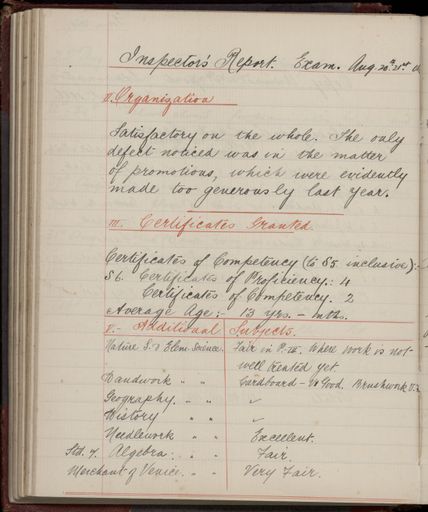 Inspector's Report. Exam. Aug 20th 21st
II. Organization
Satisfactory on the whole. The only
defect noticed was in the matter
of promotions, which were evidently
made too generously last year.
III. Certificates Granted.
Certificates of Competency (to S5 inclusive):-
S6. Certificates of Proficiency.: 4
Certificates of Competency. 2
Average Age:- 13 yrs. - mths.
V.- Additional Subjects.
Nature S. & Elem. Science. Fair in P. III. Where work is not
well treated yet.
Handwork " " Cardboard - V. Good. Brushwork
Geography. " " "
History " " "
Needlework " " Excellent.
Std. 7. Algebra. " " Fair.
Merchant of Venice. " " Very Fair.